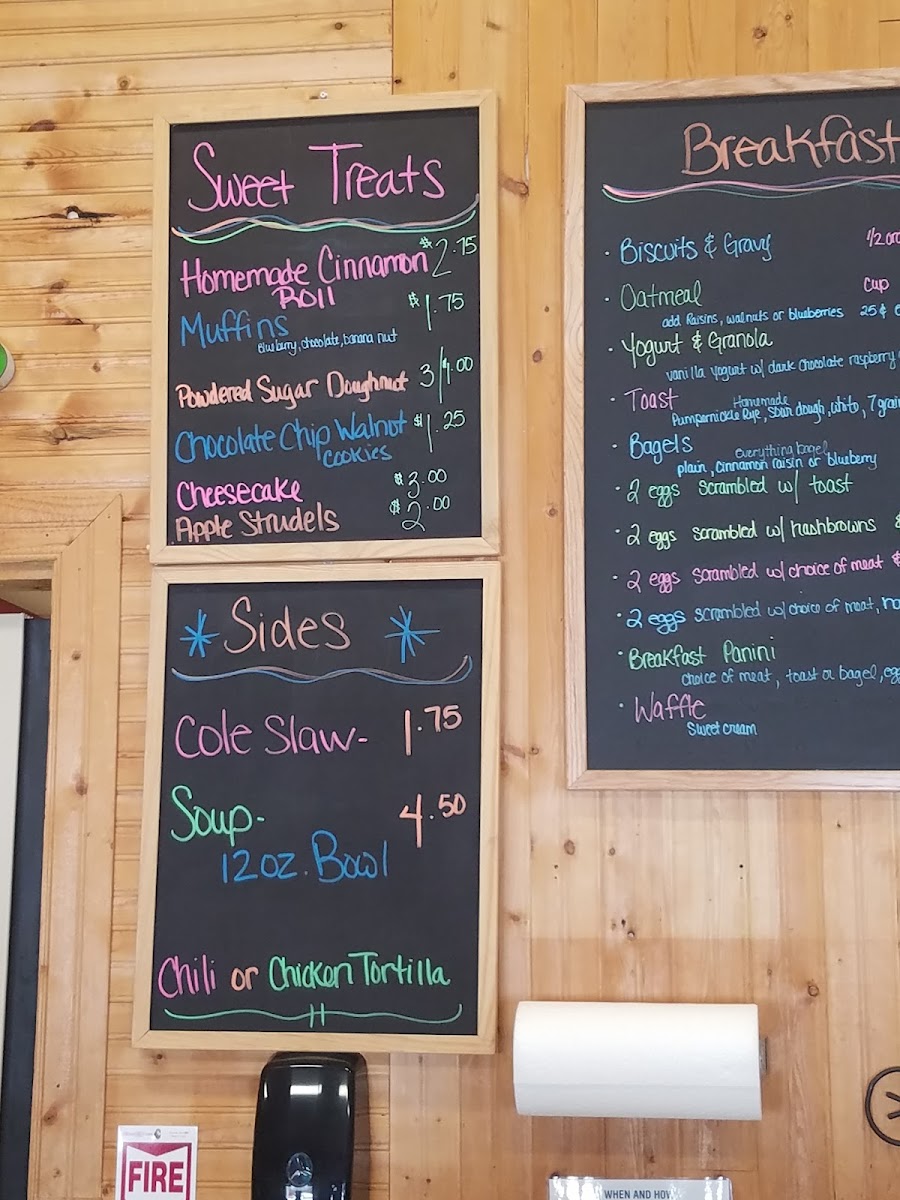 Sweet Treats
Homemade Cinnamon $2.75
Roll
Muffins $1.75
Blueberry, chocolate, banana nut
Powdered Sugar Doughnut 3/1.00
Chocolate Chip Walnut $1.25
Cookies
Cheesecake $3.00
Apple Strudels $2.00
* Sides *
Cole Slaw- 1.75
Soup- 4.50
12oz. Bowl
Chili or Chicken Tortilla
Breakfast
· Biscuits & Gravy 1/2 ord
· Oatmeal Cup
add Raisins, walnuts or blueberries 25¢
· Yogurt & Granola
vanilla yogurt w/ dark chocolate raspberry
· Toast Homemade
Pumpernickle Rye, Sour dough, white, 7 grain
· Bagels everything bagel
plain, cinnamon raisin or blueberry
· 2 eggs scrambled w/ toast
· 2 eggs scrambled w/ hashbrowns
· 2 eggs scrambled w/ choice of meat $
· 2 eggs scrambled w/ choice of meat,
· Breakfast Panini
choice of meat, toast or bagel, eg
· Waffle
Sweet cream
FIRE
WHEN AND HOW